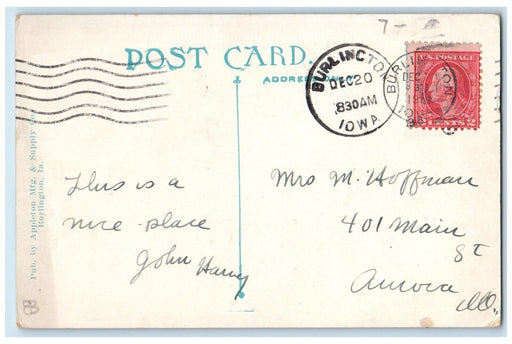 7-
POST CARD.
ADDRESS ONLY.
BURLINGTON
DEC 20
830 AM
IOWA
BURLINGTON
DEC
IOWA
U.S. POSTAGE
CENTS 2
Pub. by Appleton Mfg. & Supply Co.
Burlington, Ia.
This is a
nice place
John Harvey
Mrs M. Hoffman
401 Main
St
Aurora
Mo.